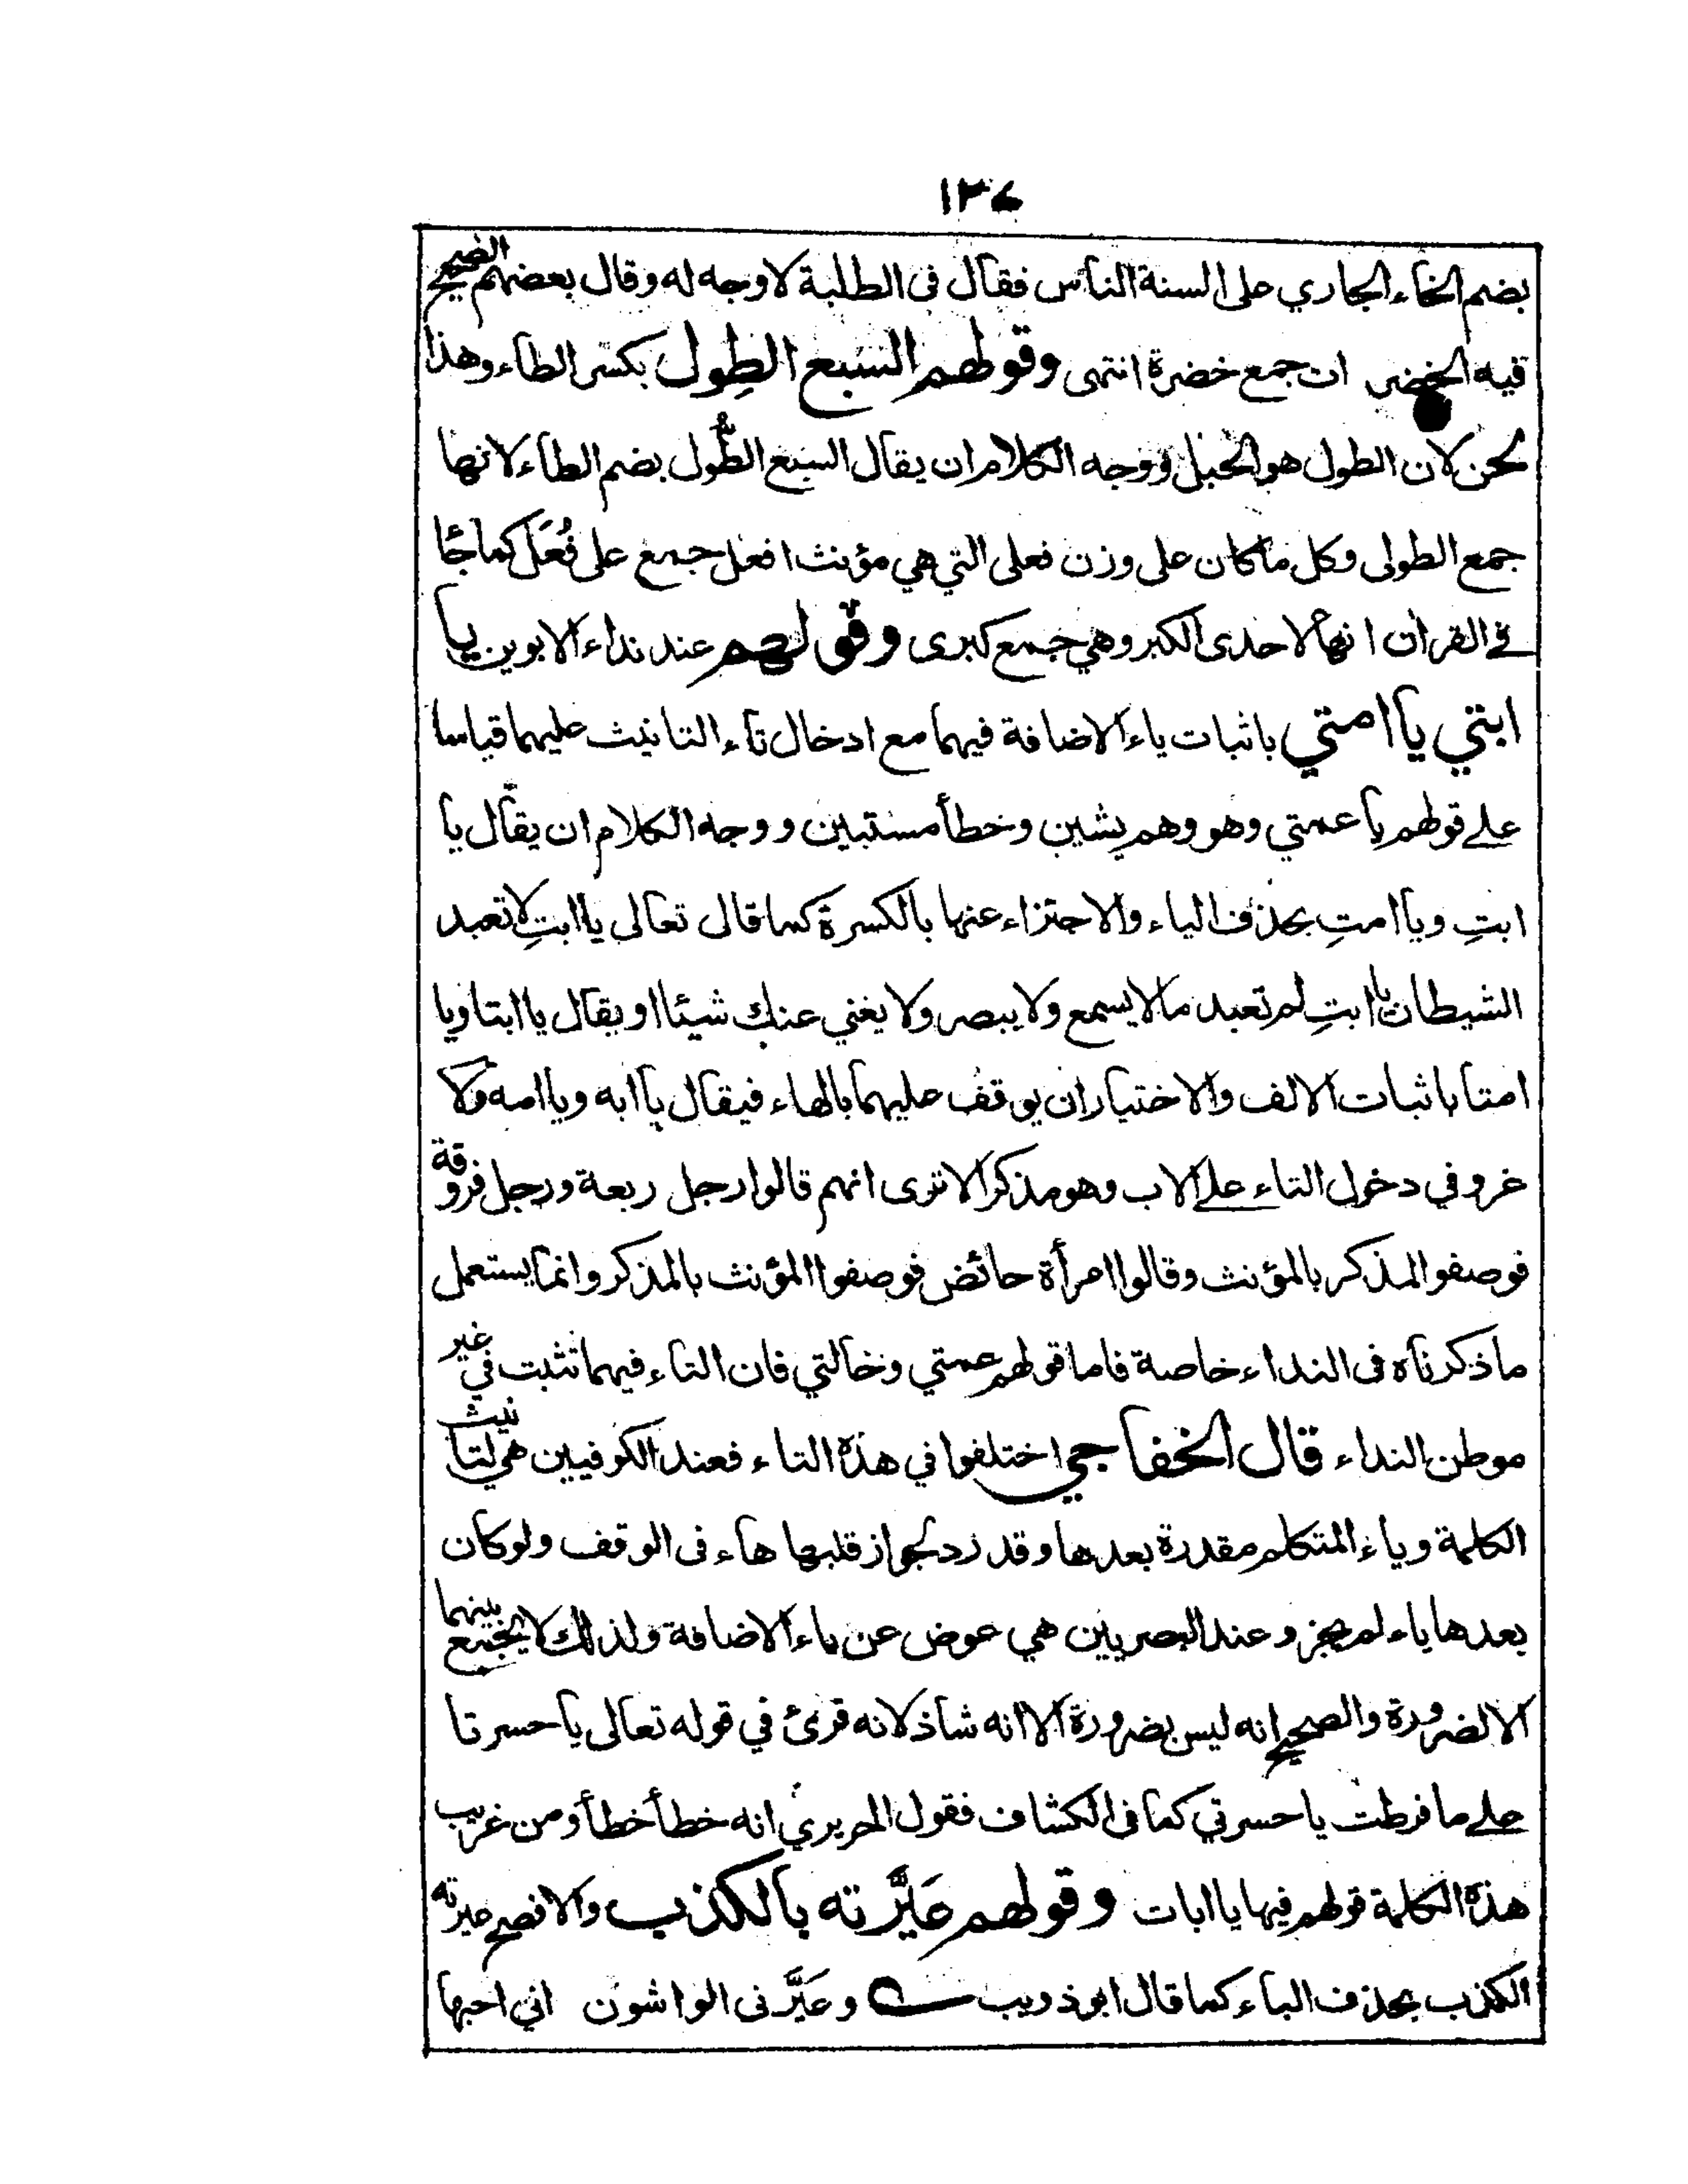 ١٣٤
بضم الخاء الجاري على السنة الناس فقال فى الطلبة لا وجه له وقال بعضهم الصحيح
فيه الخضر ان جمع خضرة انتهى وقولهم السبع الطِول بكسر الطاء وهذا
لحن لان الطول هو الحبل ووجه الكلام ان يقال السبع الطُول بضم الطاء لانها
جمع الطولى وكل ما كان على وزن فعلى التي هي مؤنث افعل جمع على فُعَل كما جاء
في القران انها لاحدى الكبر وهي جمع كبرى وقولهم عند نداء الابوين يا
ابتي يا امتي باثبات ياء الاضافة فيهما مع ادخال تاء التانيث عليهما قياسا
على قولهم يا عمتي وهو وهم يشين وخطأ مستبين ووجه الكلام ان يقال يا
ابتِ ويا امتِ بحذف الياء والاجتزاء عنها بالكسرة كما قال تعالى يا ابتِ لا تعبد
الشيطان يا ابتِ لم تعبد ما لا يسمع ولا يبصر ولا يغني عنك شيئا او يقال يا ابتا ويا
امتا باثبات الالف والاختيار ان يوقف عليهما بالهاء فيقال يا ابه ويا امه ولا
غرو في دخول التاء على الاب وهو مذكر الا ترى انهم قالوا رجل ربعة ورجل فروقة
فوصفوا المذكر بالمؤنث وقالوا امرأة حائض فوصفوا المؤنث بالمذكر وانما يستعمل
ما ذكرناه فى النداء خاصة فاما قولهم عمتي وخالتي فان التاء فيهما تثبت في غير
موطن النداء قال الخفاجي اختلفوا في هذه التاء فعند الكوفيين هي لتانيث
الكلمة وياء المتكلم مقدرة بعدها وقد رد لجواز قلبها هاء فى الوقف ولو كان
بعدها ياء لم يجز وعند البصريين هي عوض عن ياء الاضافة ولذلك لا يجتمع بينهما
الا لضرورة والصحيح انه ليس بضرورة الا انه شاذ لانه قرئ في قوله تعالى يا حسرتا
على ما فرطت يا حسرتي كما فى الكشاف فقول الحريري انه خطأ خطأ ومن غريب
هذه الكلمة قولهم فيها يا ابات وقولهم عَيَّرته بالكذب والافصح عيرته
الكذب بحذف الباء كما قال ابو ذويب وعَيَّرنى الواشون انى احبها